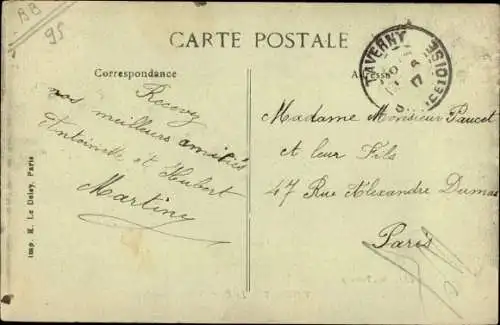 BB
95
CARTE POSTALE
Correspondance
Adresse
TAVERNY
SEINE-ET-OISE
Recevez
nos meilleurs amitiés
Antoinette et Hubert
Martiny
Madame Monsieur Paucet
et leur Fils
47 Rue Alexandre Dumas
Paris
Imp. E. Le Deley, Paris